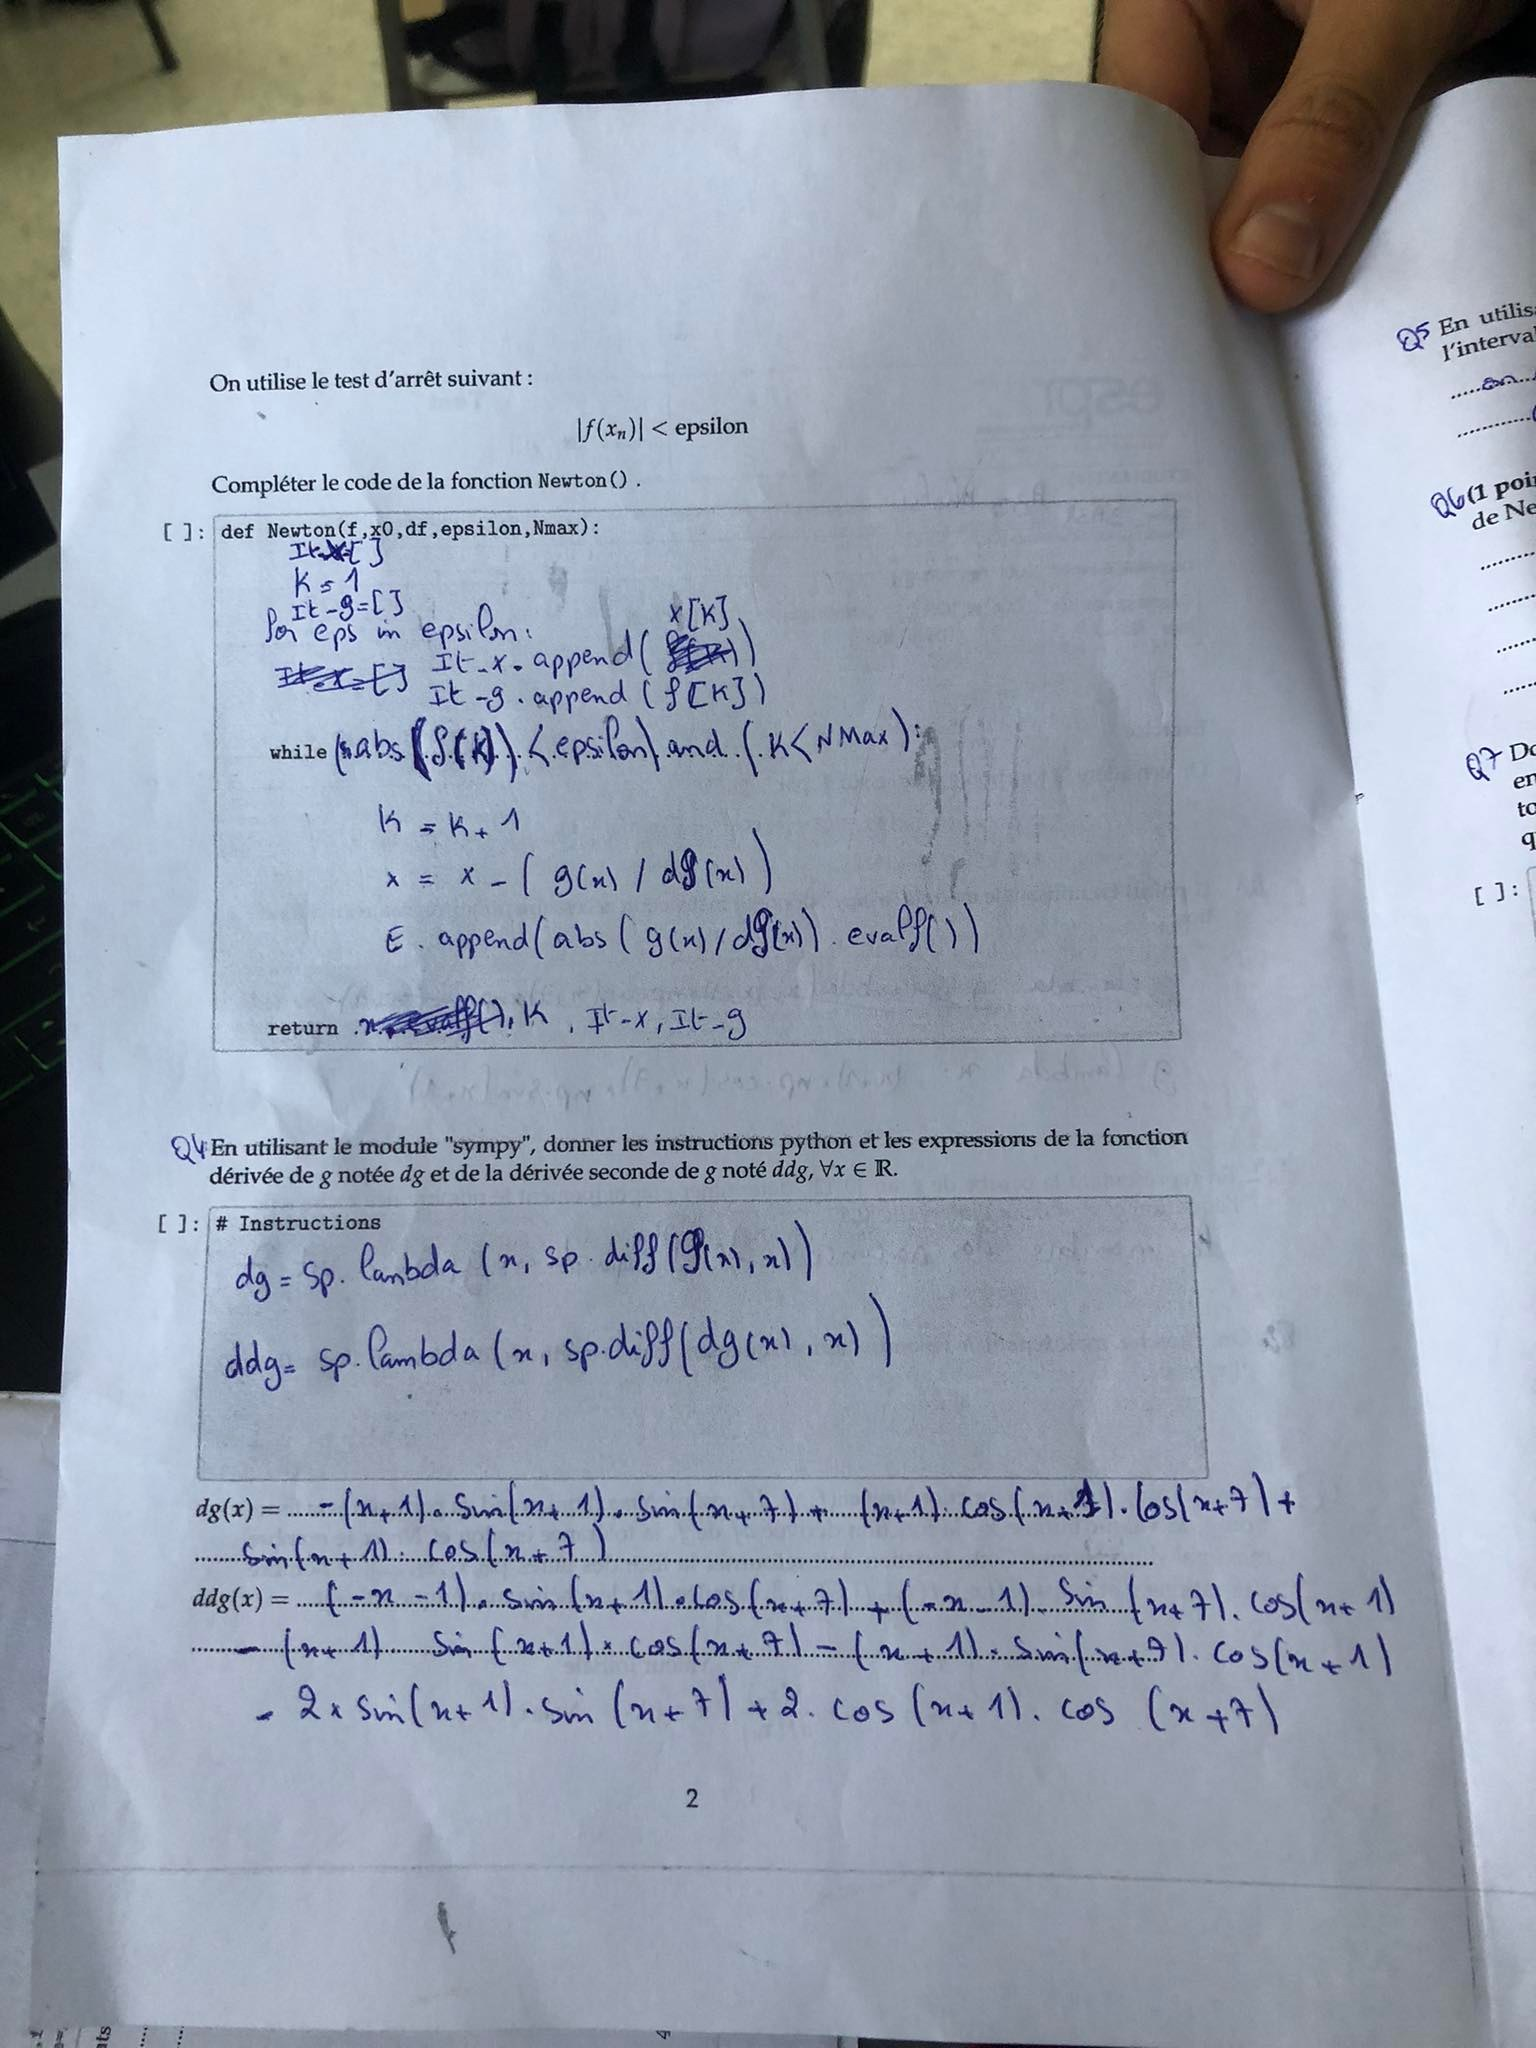 On utilise le test d'arrêt suivant :
|f(xₙ)| < epsilon
Compléter le code de la fonction Newton() .
[ ]: def Newton(f,x0,df,epsilon,Nmax):
K = 1
It-g=[]
for eps in epsilon:
x[K]
It-x.append( )
It-g.append (f[K])
while (abs (f(K)) < epsilon) and (K < NMax):
K = K + 1
x = x - ( g(x) / dg(x) )
E.append(abs ( g(x)/dg(x)). evalf())
return K , It-x, It-g
Q4 En utilisant le module "sympy", donner les instructions python et les expressions de la fonction
dérivée de g notée dg et de la dérivée seconde de g noté ddg, ∀x ∈ ℝ.
[ ]: # Instructions
dg = sp. lambda (x, sp. diff (g(x), x))
ddg= sp. lambda (x, sp.diff( dg(x), x) )
dg(x) = -(x+1). sin(x+1). sin(x+7) + (x+1). cos(x+1). cos(x+7) +
sin(x+1). cos(x+7)
ddg(x) = (-x-1). sin(x+1). cos(x+7) + (-x-1). sin (x+7). cos(x+1)
- (x+1) sin (x+1) * cos(x+7) - (x+1). sin(x+7). cos(x+1)
- 2 * sin(x+1). sin (x+7) + 2. cos (x+1). cos (x+7)
2
Q5 En utilis
l'interva
Q6 (1 poi
de Ne
Q7 Do
en
to
q
[ ]: